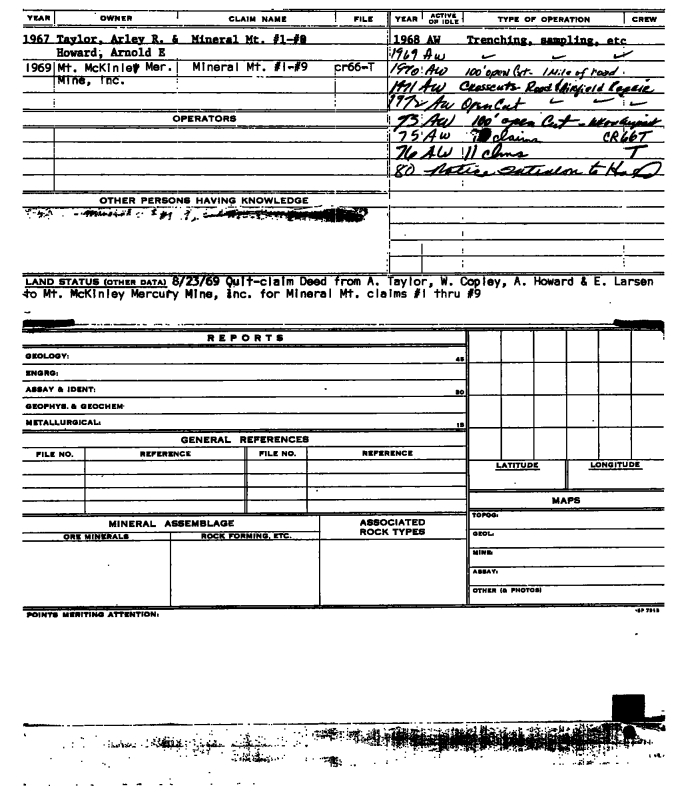 YEAR OWNER CLAIM NAME FILE YEAR ACTIVE OR IDLE TYPE OF OPERATION CREW
1967 Taylor, Arley R. & Mineral Mt. #1-#8 1968 AW Trenching, sampling, etc
Howard, Arnold E 1969 AW
1969 Mt. McKinley Mer. Mineral Mt. #1-#9 cr66-T 1970 AW 100' open Cut - 1 Mile of road.
Mine, Inc. 1971 AW Crosscuts Road & Airfield Repair
1972 AW Open Cut
OPERATORS 73 AW 100' open Cut -
75 AW claims CR66T
76 AW 11 clms T
80 Notice to Hold
OTHER PERSONS HAVING KNOWLEDGE
LAND STATUS (OTHER DATA) 8/23/69 Quit-claim Deed from A. Taylor, W. Copley, A. Howard & E. Larsen
to Mt. McKinley Mercury Mine, Inc. for Mineral Mt. claims #1 thru
#9
REPORTS
GEOLOGY: 45
ENGRG:
ASSAY & IDENT: 30
GEOPHYS. & GEOCHEM:
METALLURGICAL: 15
GENERAL REFERENCES
FILE NO. REFERENCE FILE NO. REFERENCE
LATITUDE LONGITUDE
MAPS
TOPOG:
MINERAL ASSEMBLAGE ASSOCIATED ROCK TYPES
ORE MINERALS ROCK FORMING, ETC.
GEOL:
MINE:
ASSAY:
OTHER (& PHOTOS)
POINTS MERITING ATTENTION: